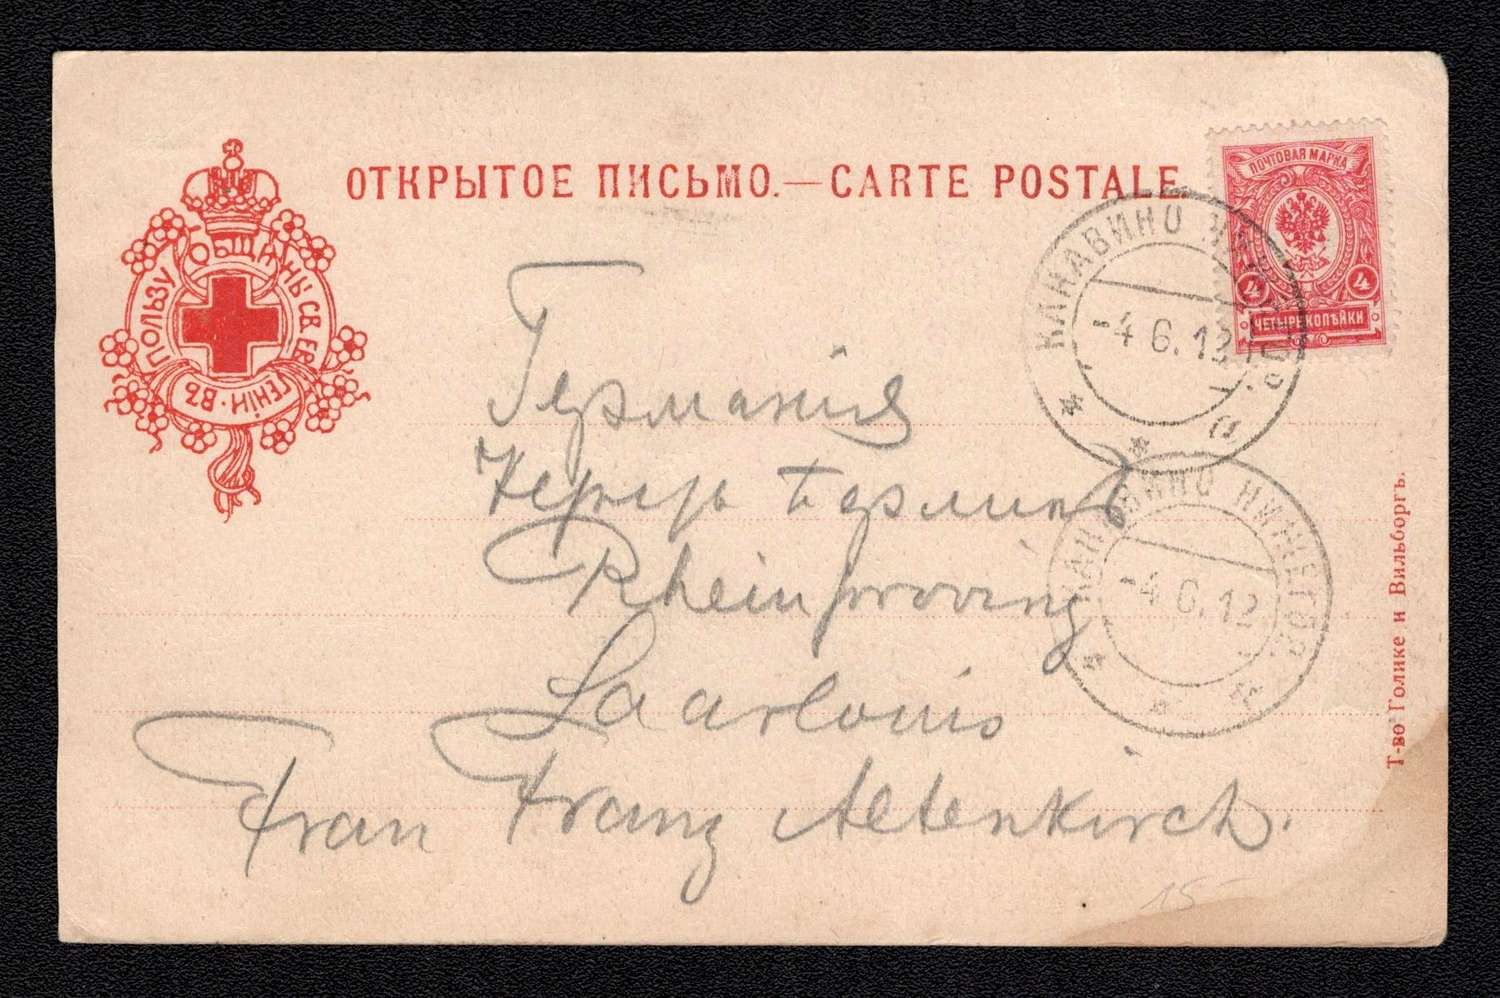 ОТКРЫТОЕ ПИСЬМО.—CARTE POSTALE.
ВЪ ПОЛЬЗУ ОБЩИНЫ СВ. ЕВГЕНІИ
ПОЧТОВАЯ МАРКА
4 4
ЧЕТЫРЕ КОПѢЙКИ
КАНАВИНО
-4.6.12
Германия
Через Берлинъ
Rheinprovinz
Saarlouis
Frau Franz Altenkirch.
КАНАВИНО НИЖЕГОР.
-4.6.12
15-
Т-во Голике и Вильборгъ.